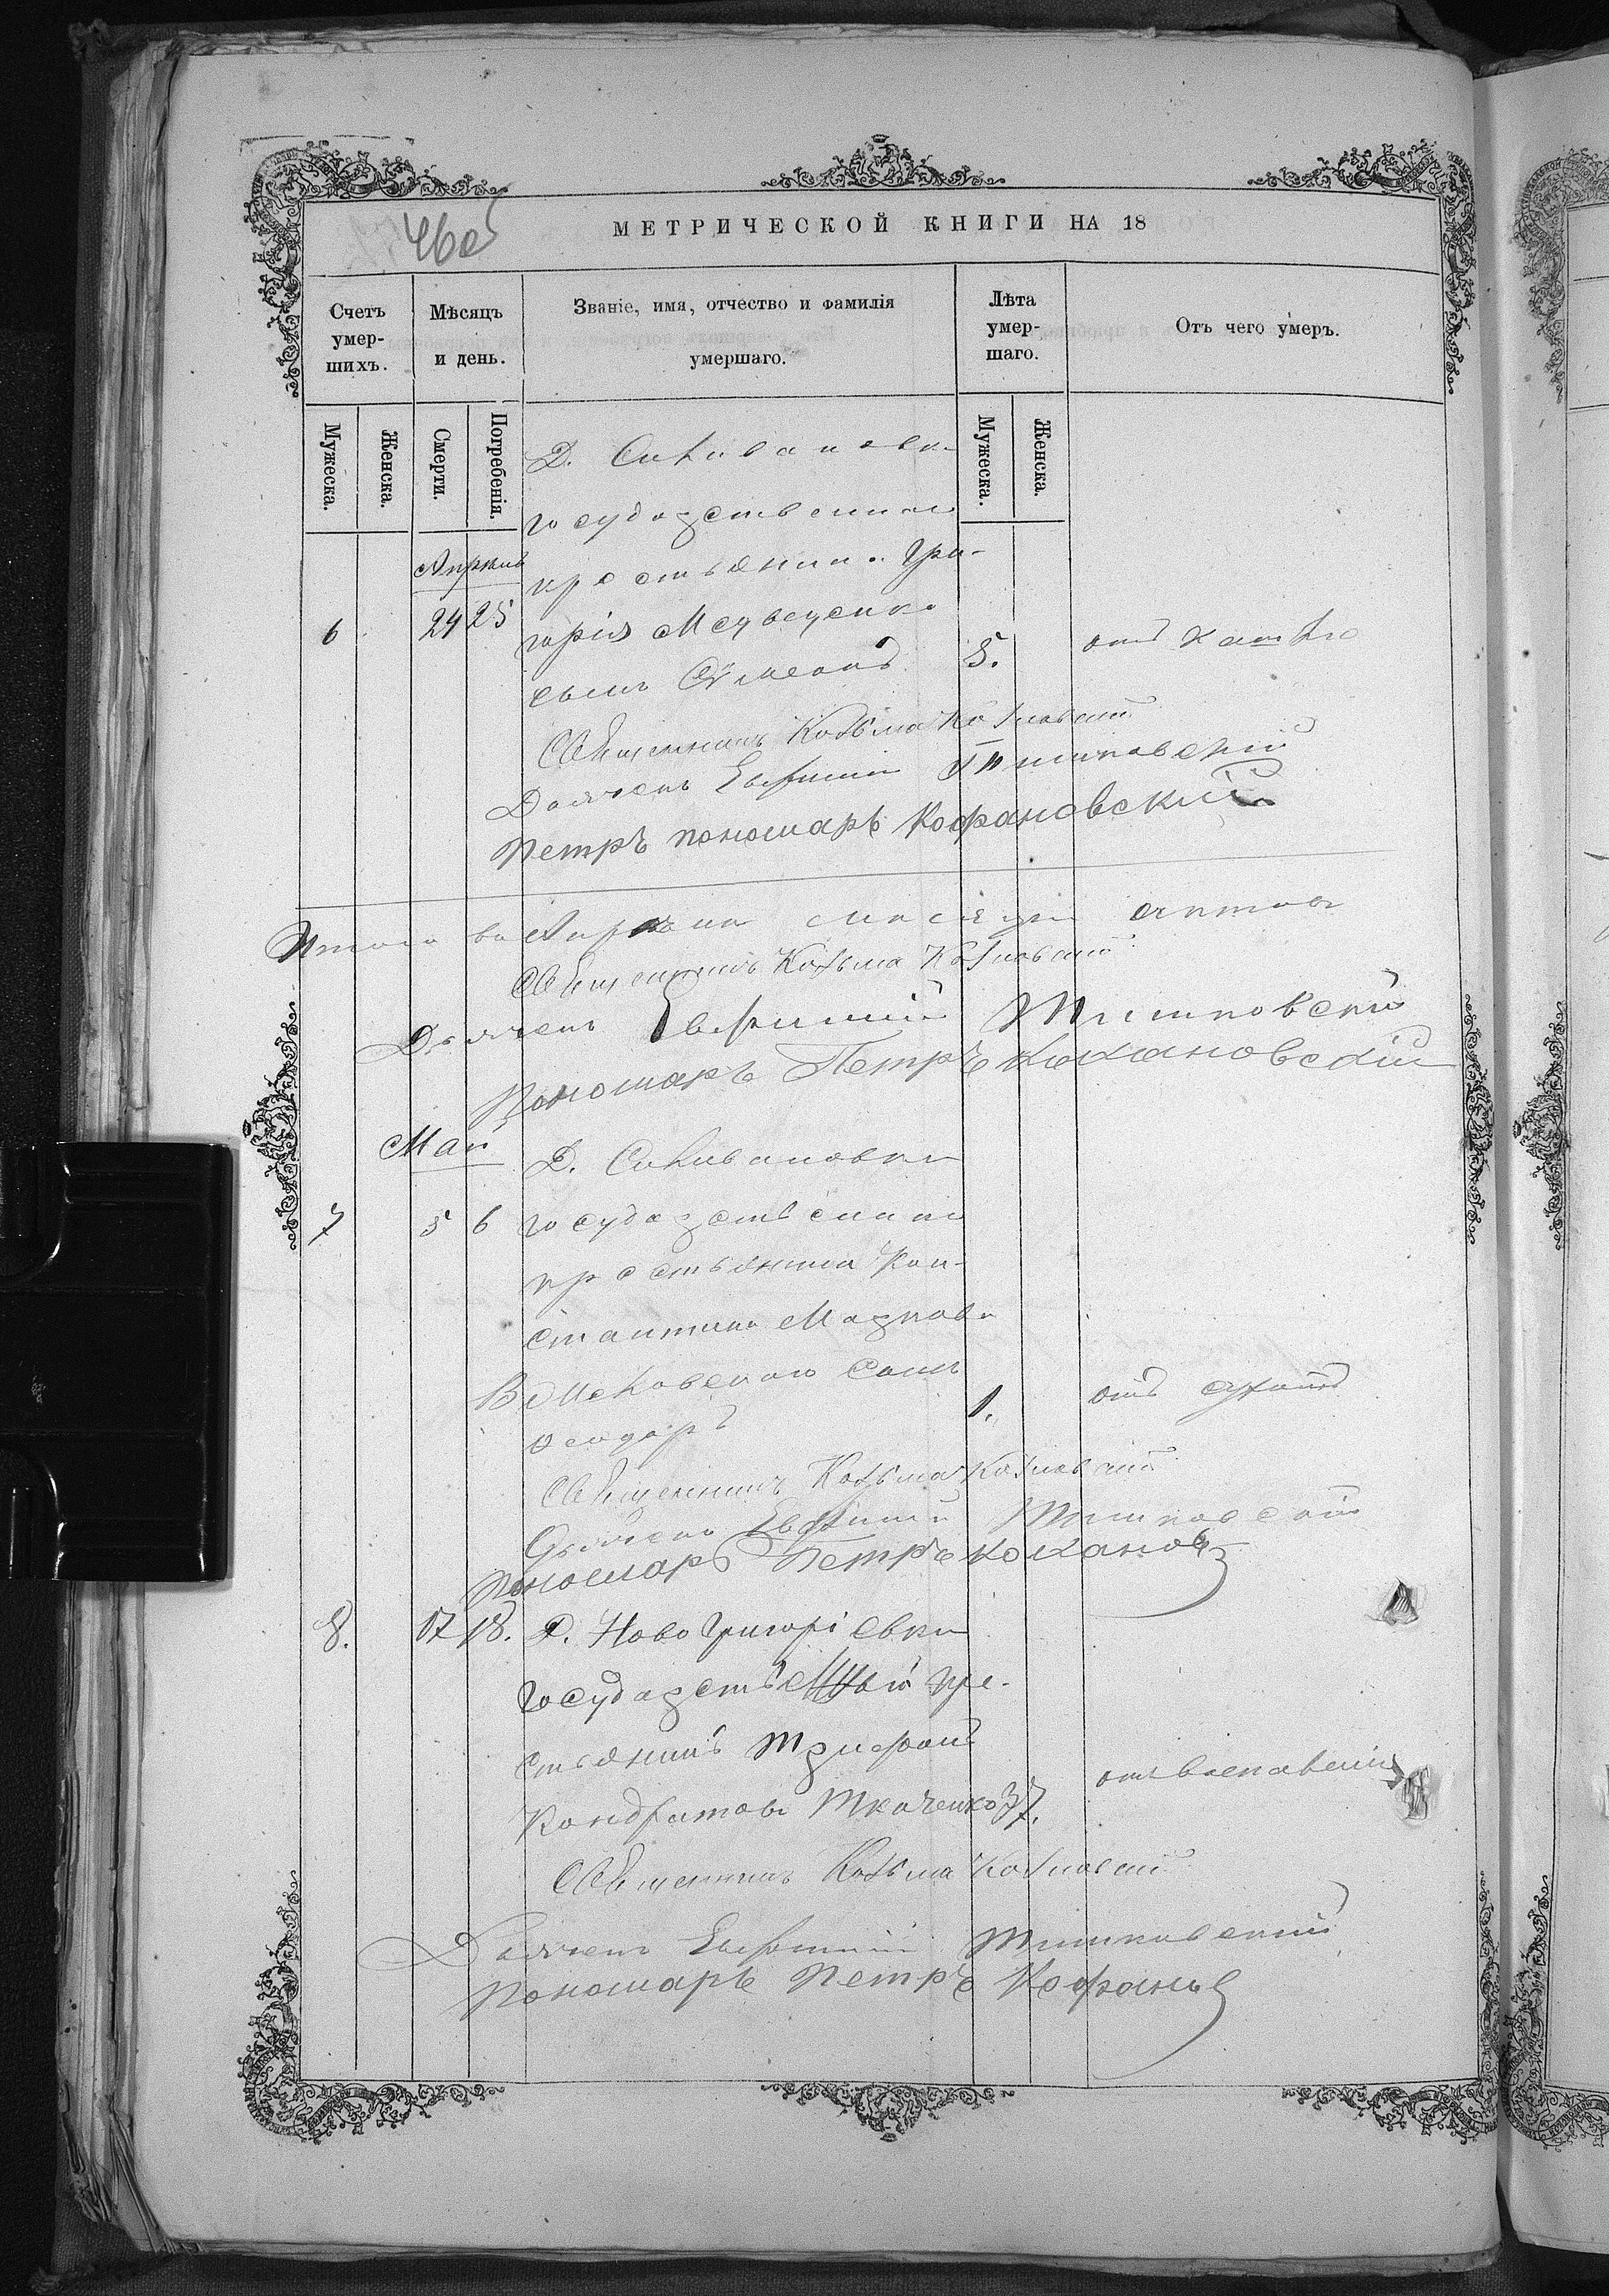 460
МЕТРИЧЕСКОЙ КНИГИ НА 18
Счетъ умер-
шихъ.
Мѣсяцъ
и день.
Званіе, имя, отчество и фамилія
умершаго.
Лѣта
умер-
шаго.
Отъ чего умеръ.
Мужеска.
Женска.
Смерти.
Погребенія.
Мужеска.
Женска.
Д. Селивановки
государственнаго
Апрѣль
крестьянина Гри-
6 24 25
горія Медведенка
сынъ Сѵмеонъ 5. отъ кашлю
Священникъ Козьма
Дьячекъ Евфимій Тишковскій
Петръ пономарь Кофановскій
Итого въ Апрѣлѣ месяцѣ
Священникъ Козьма
Дьячекъ Евфимій Тишковскій
Пономарь Петръ Кохановскій
Май
Д. Селивановки
7 5 6 государственнаго
крестьянина Кон-
стантина Маркова
сынъ
Ѳеодоръ 1. отъ
Священникъ Козьма
Дьячекъ Евфимій Тишковскій
Пономарь Петръ Коханов
8. 17 18. Д. Ново Григоріевки
государственный кре-
стьянинъ Трифонъ
Кондратовъ Ткаченко 37. отъ
Священникъ Козьма
Дьячекъ Евфимій Тишковскій
Пономарь Петръ Кофанов